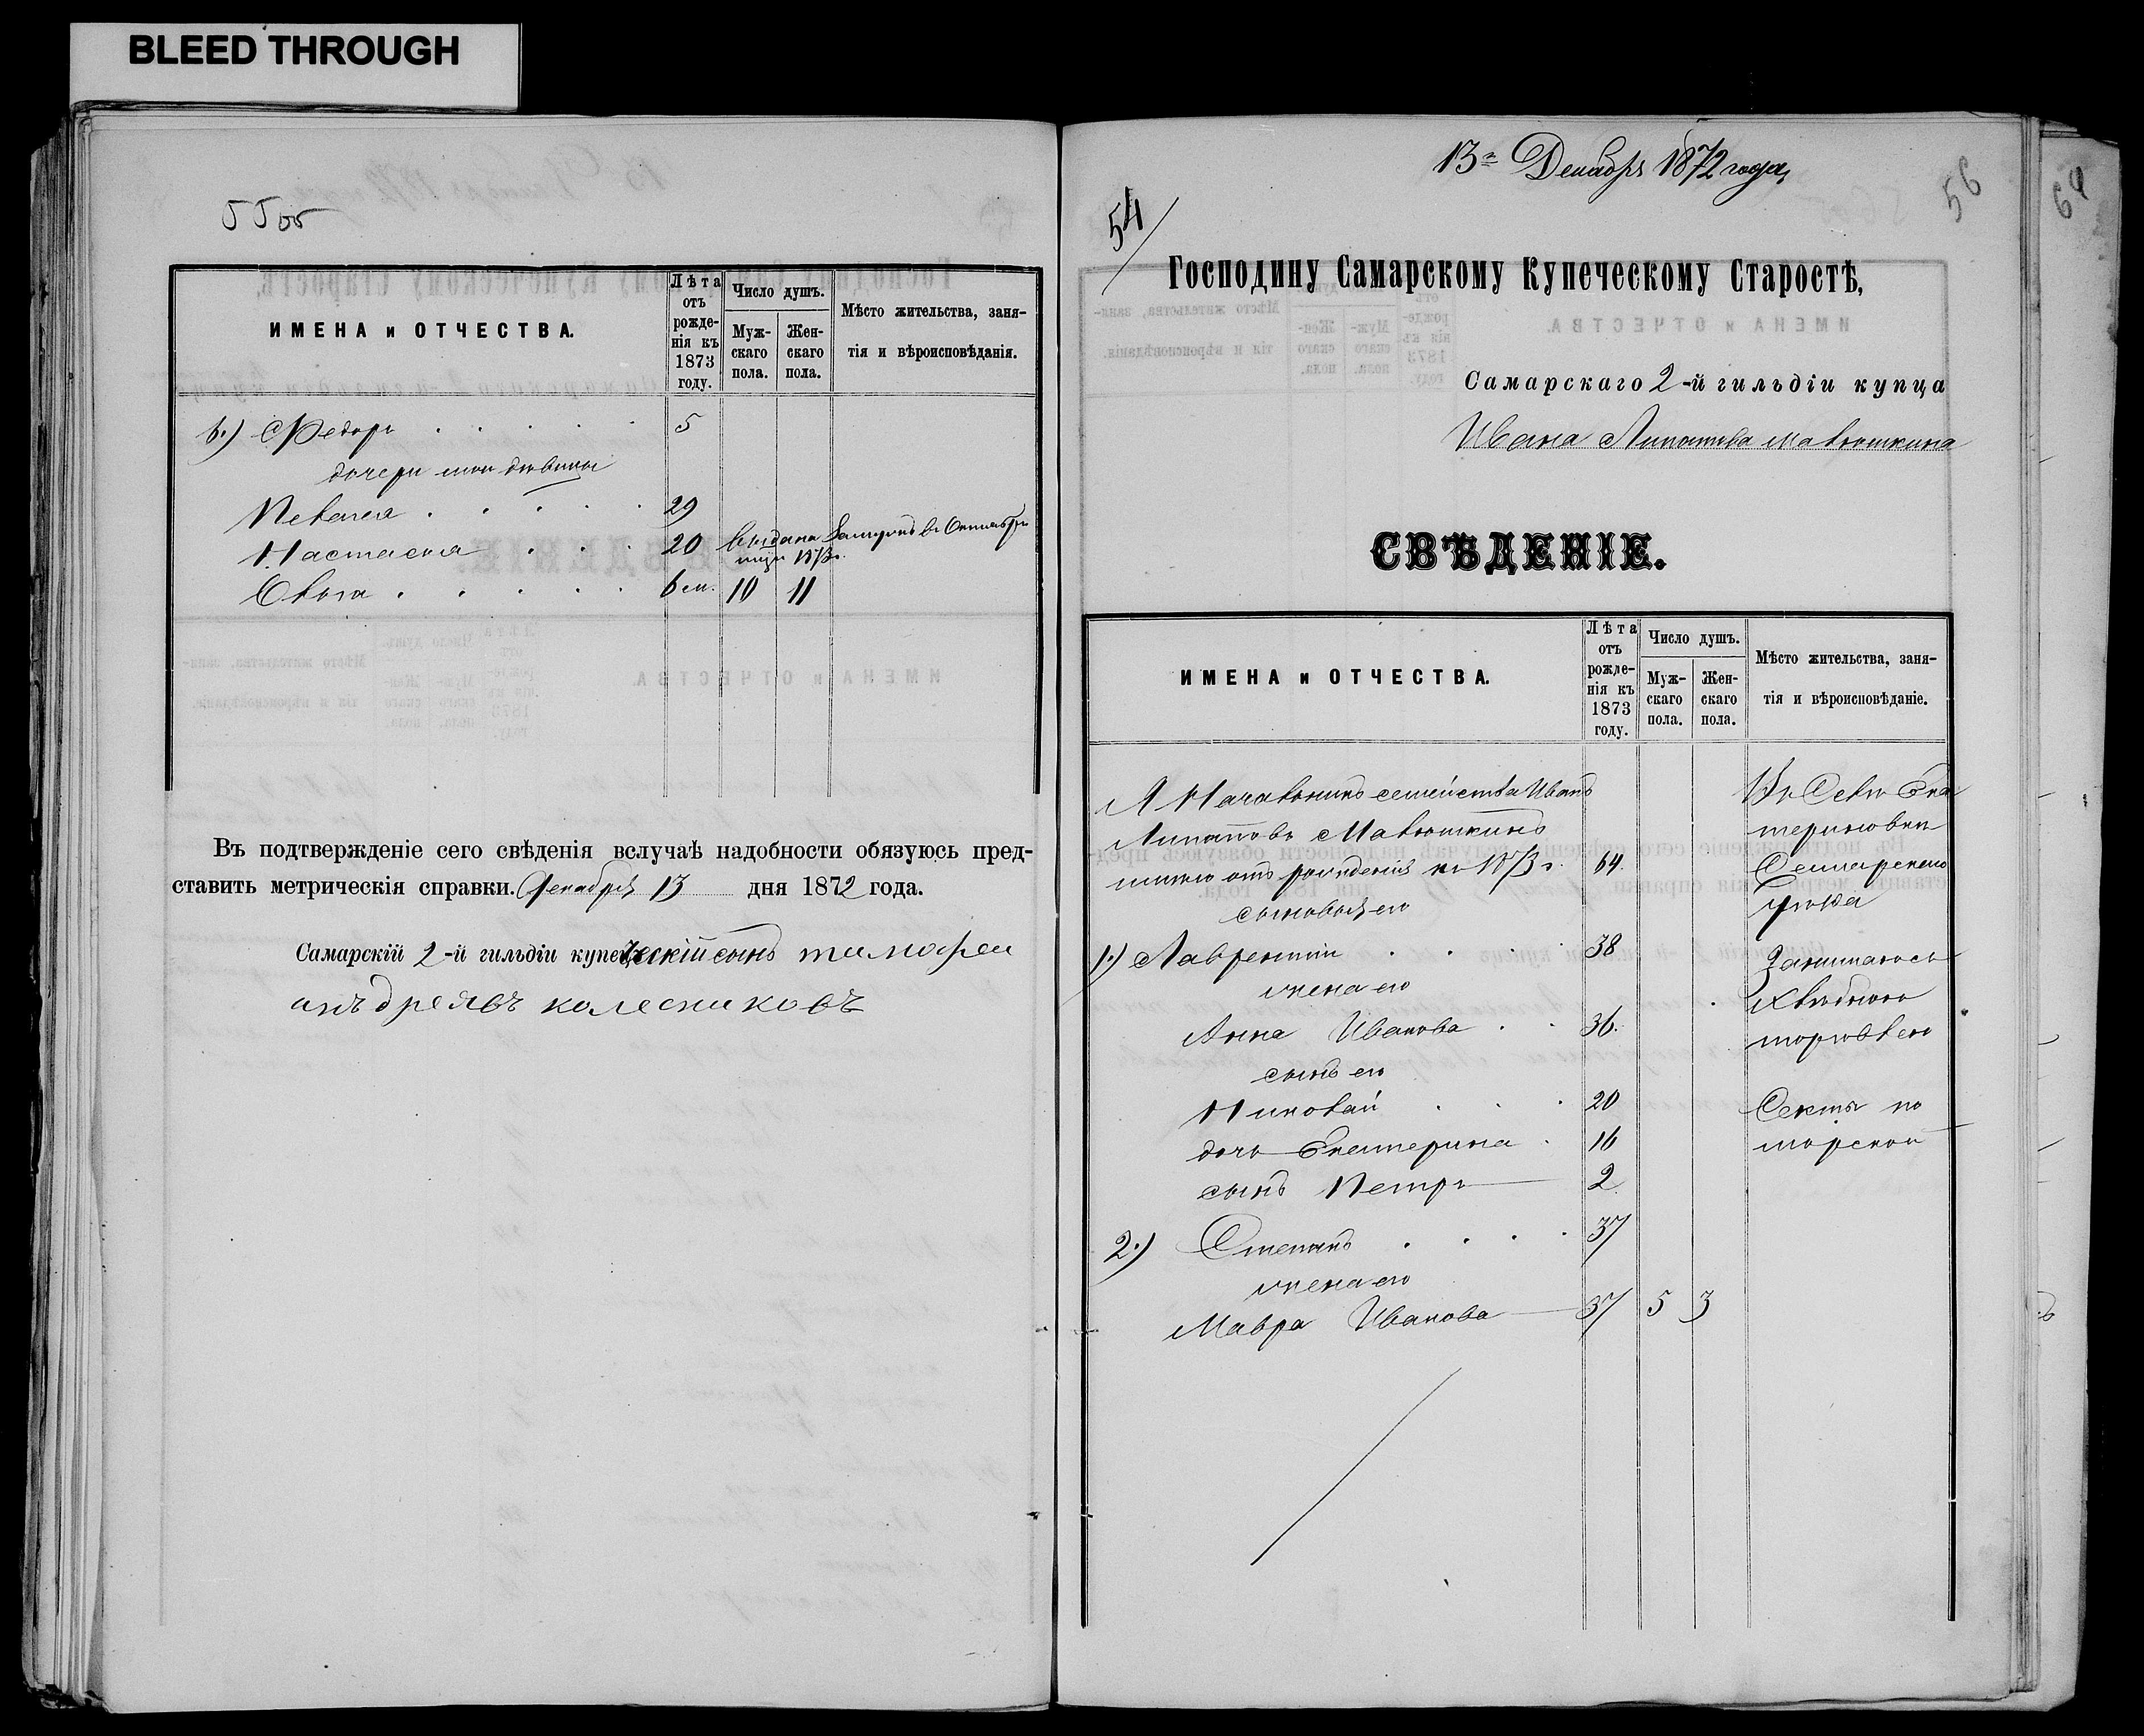 BLEED THROUGH
55 об
ИМЕНА и ОТЧЕСТВА.
Лѣта отъ рожденія къ 1873 году.
Число душъ.
Мужскаго пола.
Женскаго пола.
Мѣсто жительства, занятія и вѣроисповѣданія.
6.) Федоръ 5
дочери мои дѣвицы
Пелагея 29
Настасия 20 выдана замужъ въ Октябрѣ
мцѣ 1873 г.
Ольга 6 м. 10 11
Въ подтвержденіе сего свѣденія вслучаѣ надобности обязуюсь пред-
ставить метрическія справки. Декабря 13 дня 1872 года.
Самарскій 2-й гильдіи купеческій сынъ тимофеи
анъдреявъ колесниковъ
13го Декабря 1872 года
56
64
54
Господину Самарскому Купеческому Старостѣ,
Самарскаго 2-й гильдіи купца
Ивана Липатова Малюшкина
СВѢДЕНІЕ.
ИМЕНА и ОТЧЕСТВА.
Лѣта отъ рожденія къ 1873 году.
Число душъ.
Мужскаго пола.
Женскаго пола.
Мѣсто жительства, занятія и вѣроисповѣданіе.
Я Начальникъ семейства Иванъ
Липатовъ Малюшкинъ
мнѣ отъ рожденія къ 1873 г. 64
сыновья его
1.) Лаврентій 38
жена его
Анна Иванова 36.
сынъ его
Николай 20
дочь Екатерина 16
сынъ Петръ 2
2.) Степанъ 37
жена его
Мавра Иванова 37 5 3
Въ Селѣ Ека
териновки
Самарскаго
уѣзда
Занимаюсь
хлѣбною
торговлею
Секты по
морской